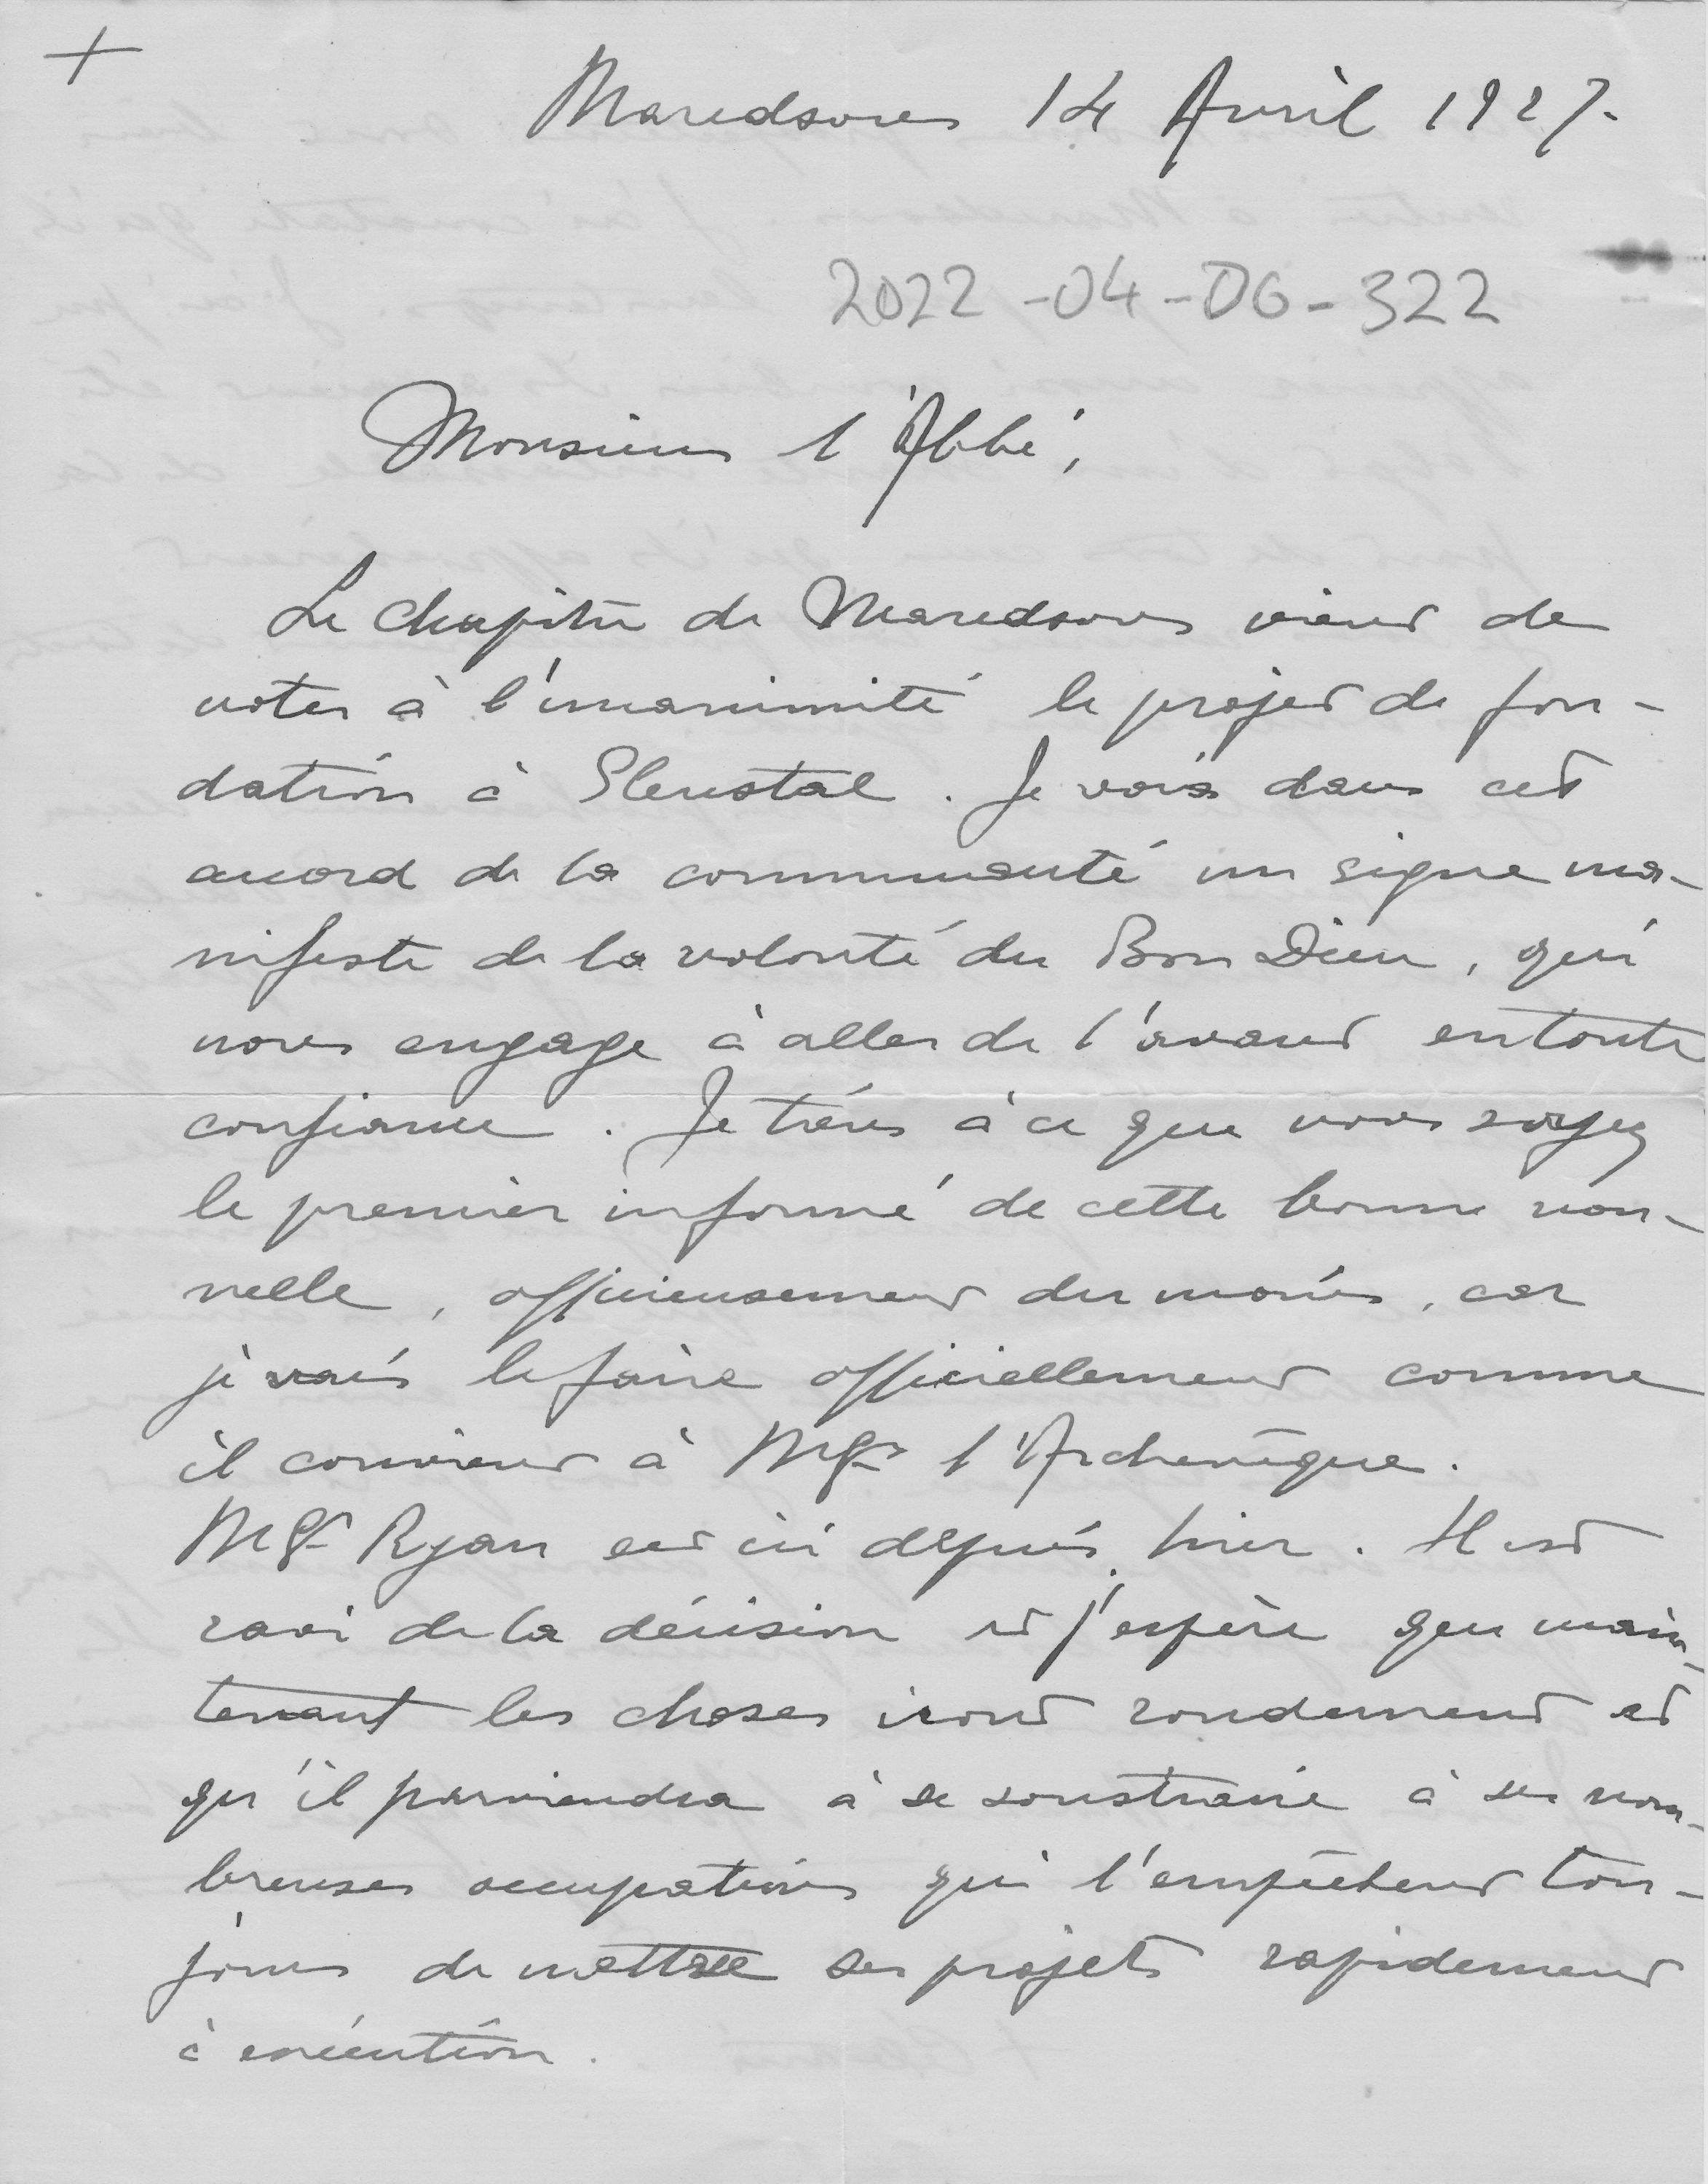 +
Maredsous 14 Avril 1927.
2022-04-06-322
Monsieur l'Abbé,
Le Chapitre de Maredsous vient de
voter à l'unanimité le projet de fon-
dation à Glenstal. Je vois dans cet
accord de la communauté un signe ma-
nifeste de la volonté du Bon Dieu, qui
nous engage à aller de l'avant en toute
confiance. Je tiens à ce que vous soyez
le premier informé de cette bonne nou-
velle, officieusement du moins, car
je vais le faire officiellement comme
il convient à Mgr l'Archevêque.
Mgr Ryan est ici depuis hier. Il est
ravi de la décision et j'espère que main-
tenant les choses iront rondement et
qu'il parviendra à se soustraire à ses nom-
breuses occupations qui l'empêchent tou-
jours de mettre ses projets rapidement
à exécution.